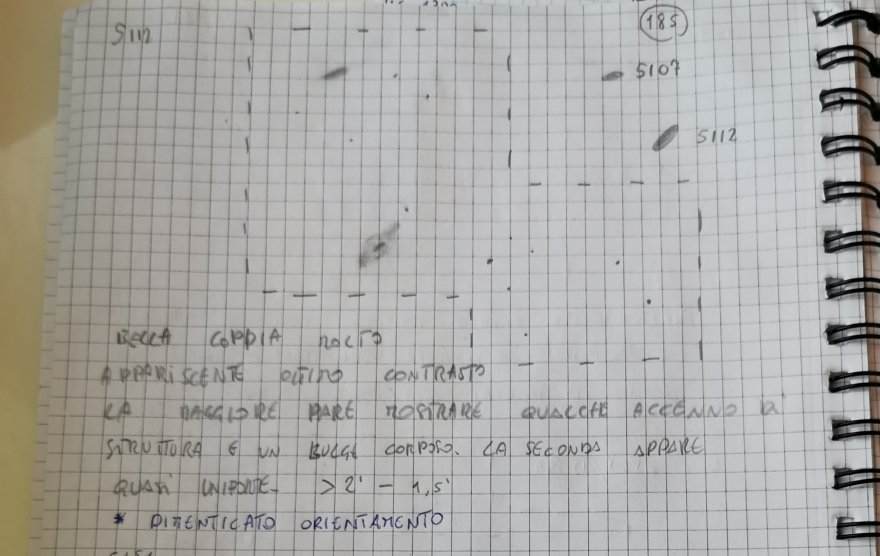 5112
185
5107
5112
BELLA COPPIA MOLTO
APPARISCENTE OTTIMO CONTRASTO
LA MAGGIORE PARE MOSTRARE QUALCHE ACCENNO DI
STRUTTURA E UN BULGE CORPOSO. LA SECONDA APPARE
QUASI UNIFORME. >2' - 1,5'
* DIMENTICATO ORIENTAMENTO